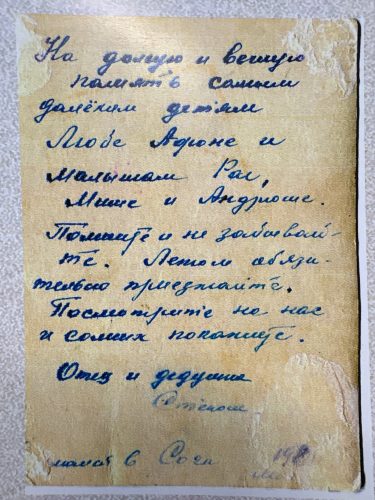 На долгую и вечную
память самым
далёким детям
Любе Афоне и
малышам Рае,
Мише и Андрюше.
Помните и не забывай-
те. Летом обязи-
тельно приезжайте.
Посмотрите на нас
и самих покажите.
Отец и дедушка
в Сочи